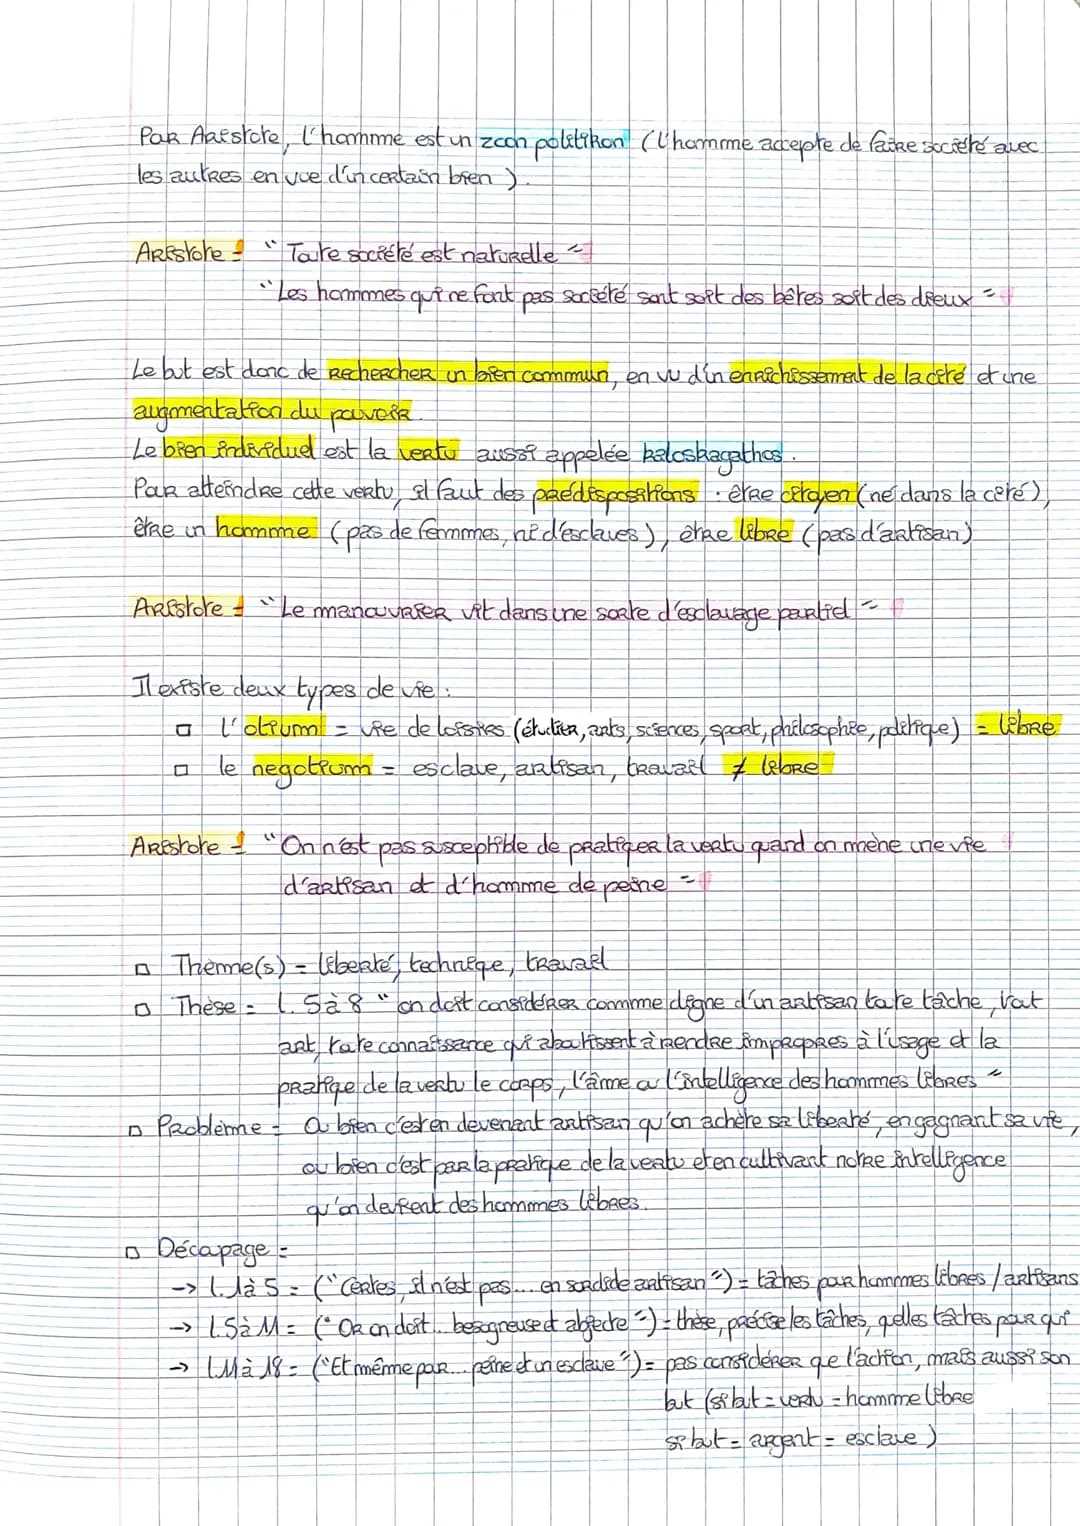 Pour Aristote, l'homme est un zoon politikon (l'homme accepte de faire société avec
les autres en vue d'un certain bien).
Aristote : " Toute société est naturelle "
" Les hommes qui ne font pas société sont soit des bêtes soit des dieux "
Le but est donc de rechercher un bien commun, en vu d'un enrichissement de la cité et une
augmentation du pouvoir.
Le bien individuel est la vertu aussi appelée kaloskagathos.
Pour atteindre cette vertu, il faut des prédispositions : être citoyen (né dans la cité),
être un homme (pas de femmes, ni d'esclaves), être libre (pas d'artisan)
Aristote : " Le manouvrier vit dans une sorte d'esclavage partiel "
Il existe deux types de vie :
□ l'otium = vie de loisirs (étudier, arts, sciences, sport, philosophie, politique) = libre
□ le negotium = esclave, artisan, travail ≠ libre
Aristote : " On n'est pas susceptible de pratiquer la vertu quand on mène une vie
d'artisan et d'homme de peine "
□ Thème(s) = liberté, technique, travail
□ Thèse = l. 5 à 8 " on doit considérer comme digne d'un artisan toute tâche, tout
art, toute connaissance qui aboutissent à rendre impropres à l'usage et la
pratique de la vertu le corps, l'âme ou l'intelligence des hommes libres "
□ Problème = Ou bien c'est en devenant artisan qu'on achète sa liberté, en gagnant sa vie,
ou bien c'est par la pratique de la vertu et en cultivant notre intelligence
qu'on devient des hommes libres.
□ Décapage =
→ l. 1 à 5 = ("Certes, il n'est pas... en sordide artisan") = tâches pour hommes libres / artisans
→ l. 5 à 11 = (" Or on doit... besogneuse et abjecte ") = thèse, précise les tâches, quelles tâches pour qui
→ l. 11 à 18 = ("Et même pour... peine et un esclave") = pas considérer que l'action, mais aussi son
but (si but = vertu = homme libre
si but = argent = esclave)